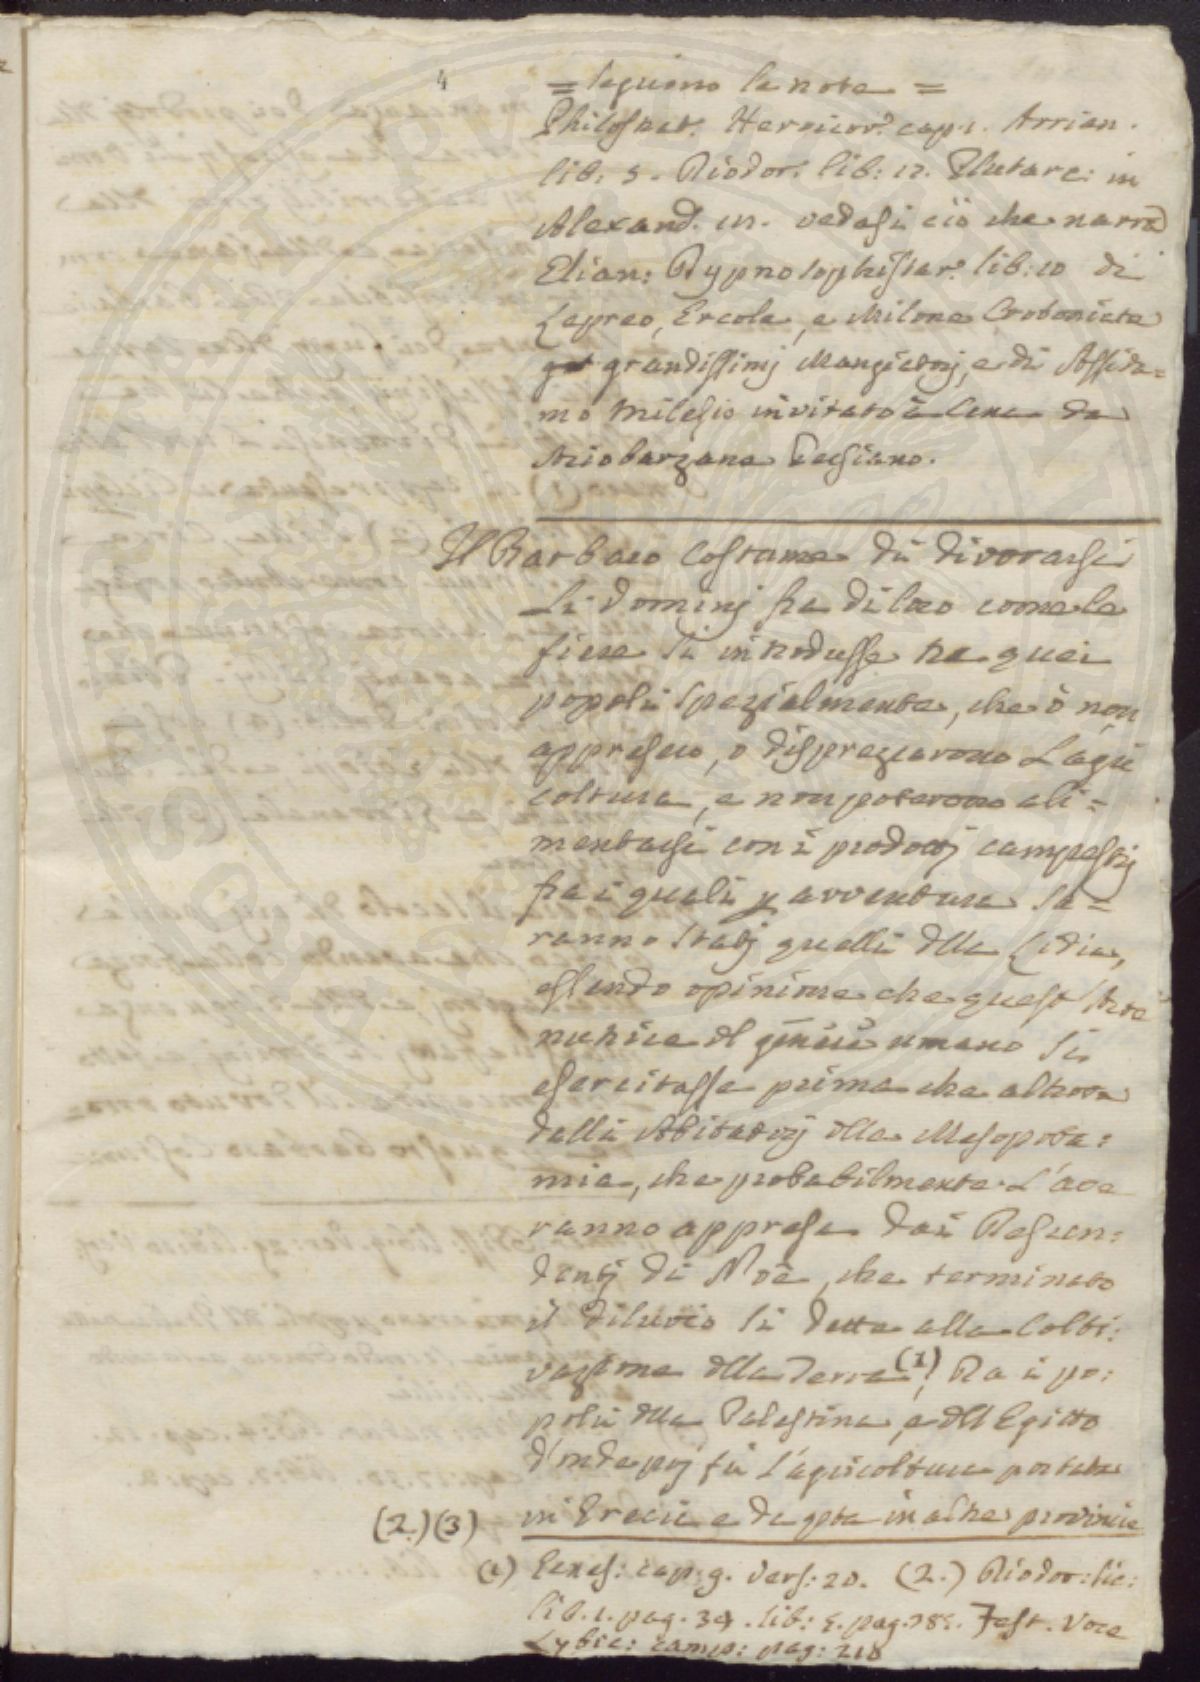 4
= seguono le note =
Philostrat. Heroicor. cap. 1. Arrian.
lib. 5. Diodor. lib: 17. Plutarc: in
Alexand. in. vedasi ciò che narra
Elian: Dypnosophistar. lib: 10 di
Lepreo, Ercole, e Milone Crotoniata
grandissimj Mangiatorj, e di Assida=
mo Milesio invitato à Cena da
Ariobarzane Persiano.
Il Barbaro Costume di divorarsi
li Dominj fra di loro come le
fiere si introdusse tra quei
popoli spezialmente, che ò non
appresero, o disprezzarono L'agri
coltura, e non poterono ali=
mentarsi con i prodottj campestrj
fra i quali p avventura sa=
ranno statj quelli dlla Lidia,
essendo opinione che quest' Arte
nutrice dl genere umano si
esercitasse prima che altrove
dalli Abitatorj dlla Mesopota=
mia, che probabilmente L'ave
ranno appresa dai Descen=
dentj di Noè, che terminato
il diluvio si dette alla Colti:
vazione dlla Terra (1) Da i po:
poli dlla Palestina, e dll Egitto
d'onde poj fù L'agricoltura portata
in Grecia e da qsta in altre provincie
(2.) (3)
(1) Genes: cap: 9. vers: 20. (2.) Diodor: sic:
lib. 1. pag. 34. lib: 5. pag. 785. Fest. Voce
Lybic: camp: pag: 210